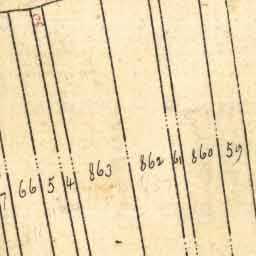 2
7 66 5 4 863 862 61 860 59